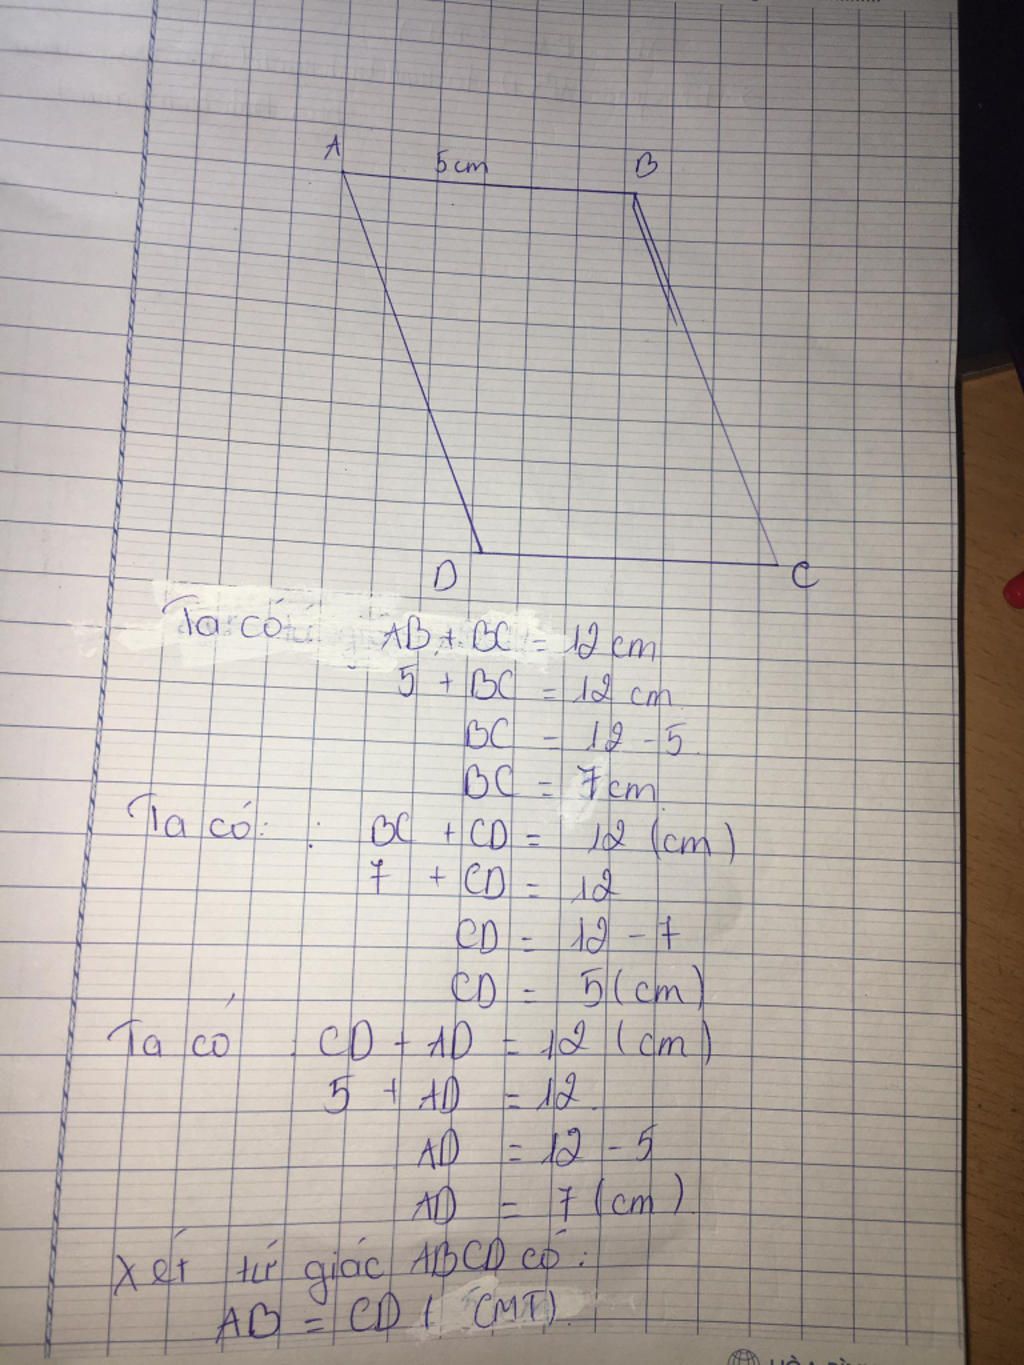 A 5cm B
D C
Ta có: AB + BC = 12 cm
5 + BC = 12 cm
BC = 12 - 5
BC = 7cm
Ta có: : BC + CD = 12 (cm)
7 + CD = 12
CD = 12 - 7
CD = 5 (cm)
Ta có : CD + AD = 12 (cm)
5 + AD = 12
AD = 12 - 5
AD = 7 (cm)
Xét tứ giác ABCD có:
AB = CD ( CMT)